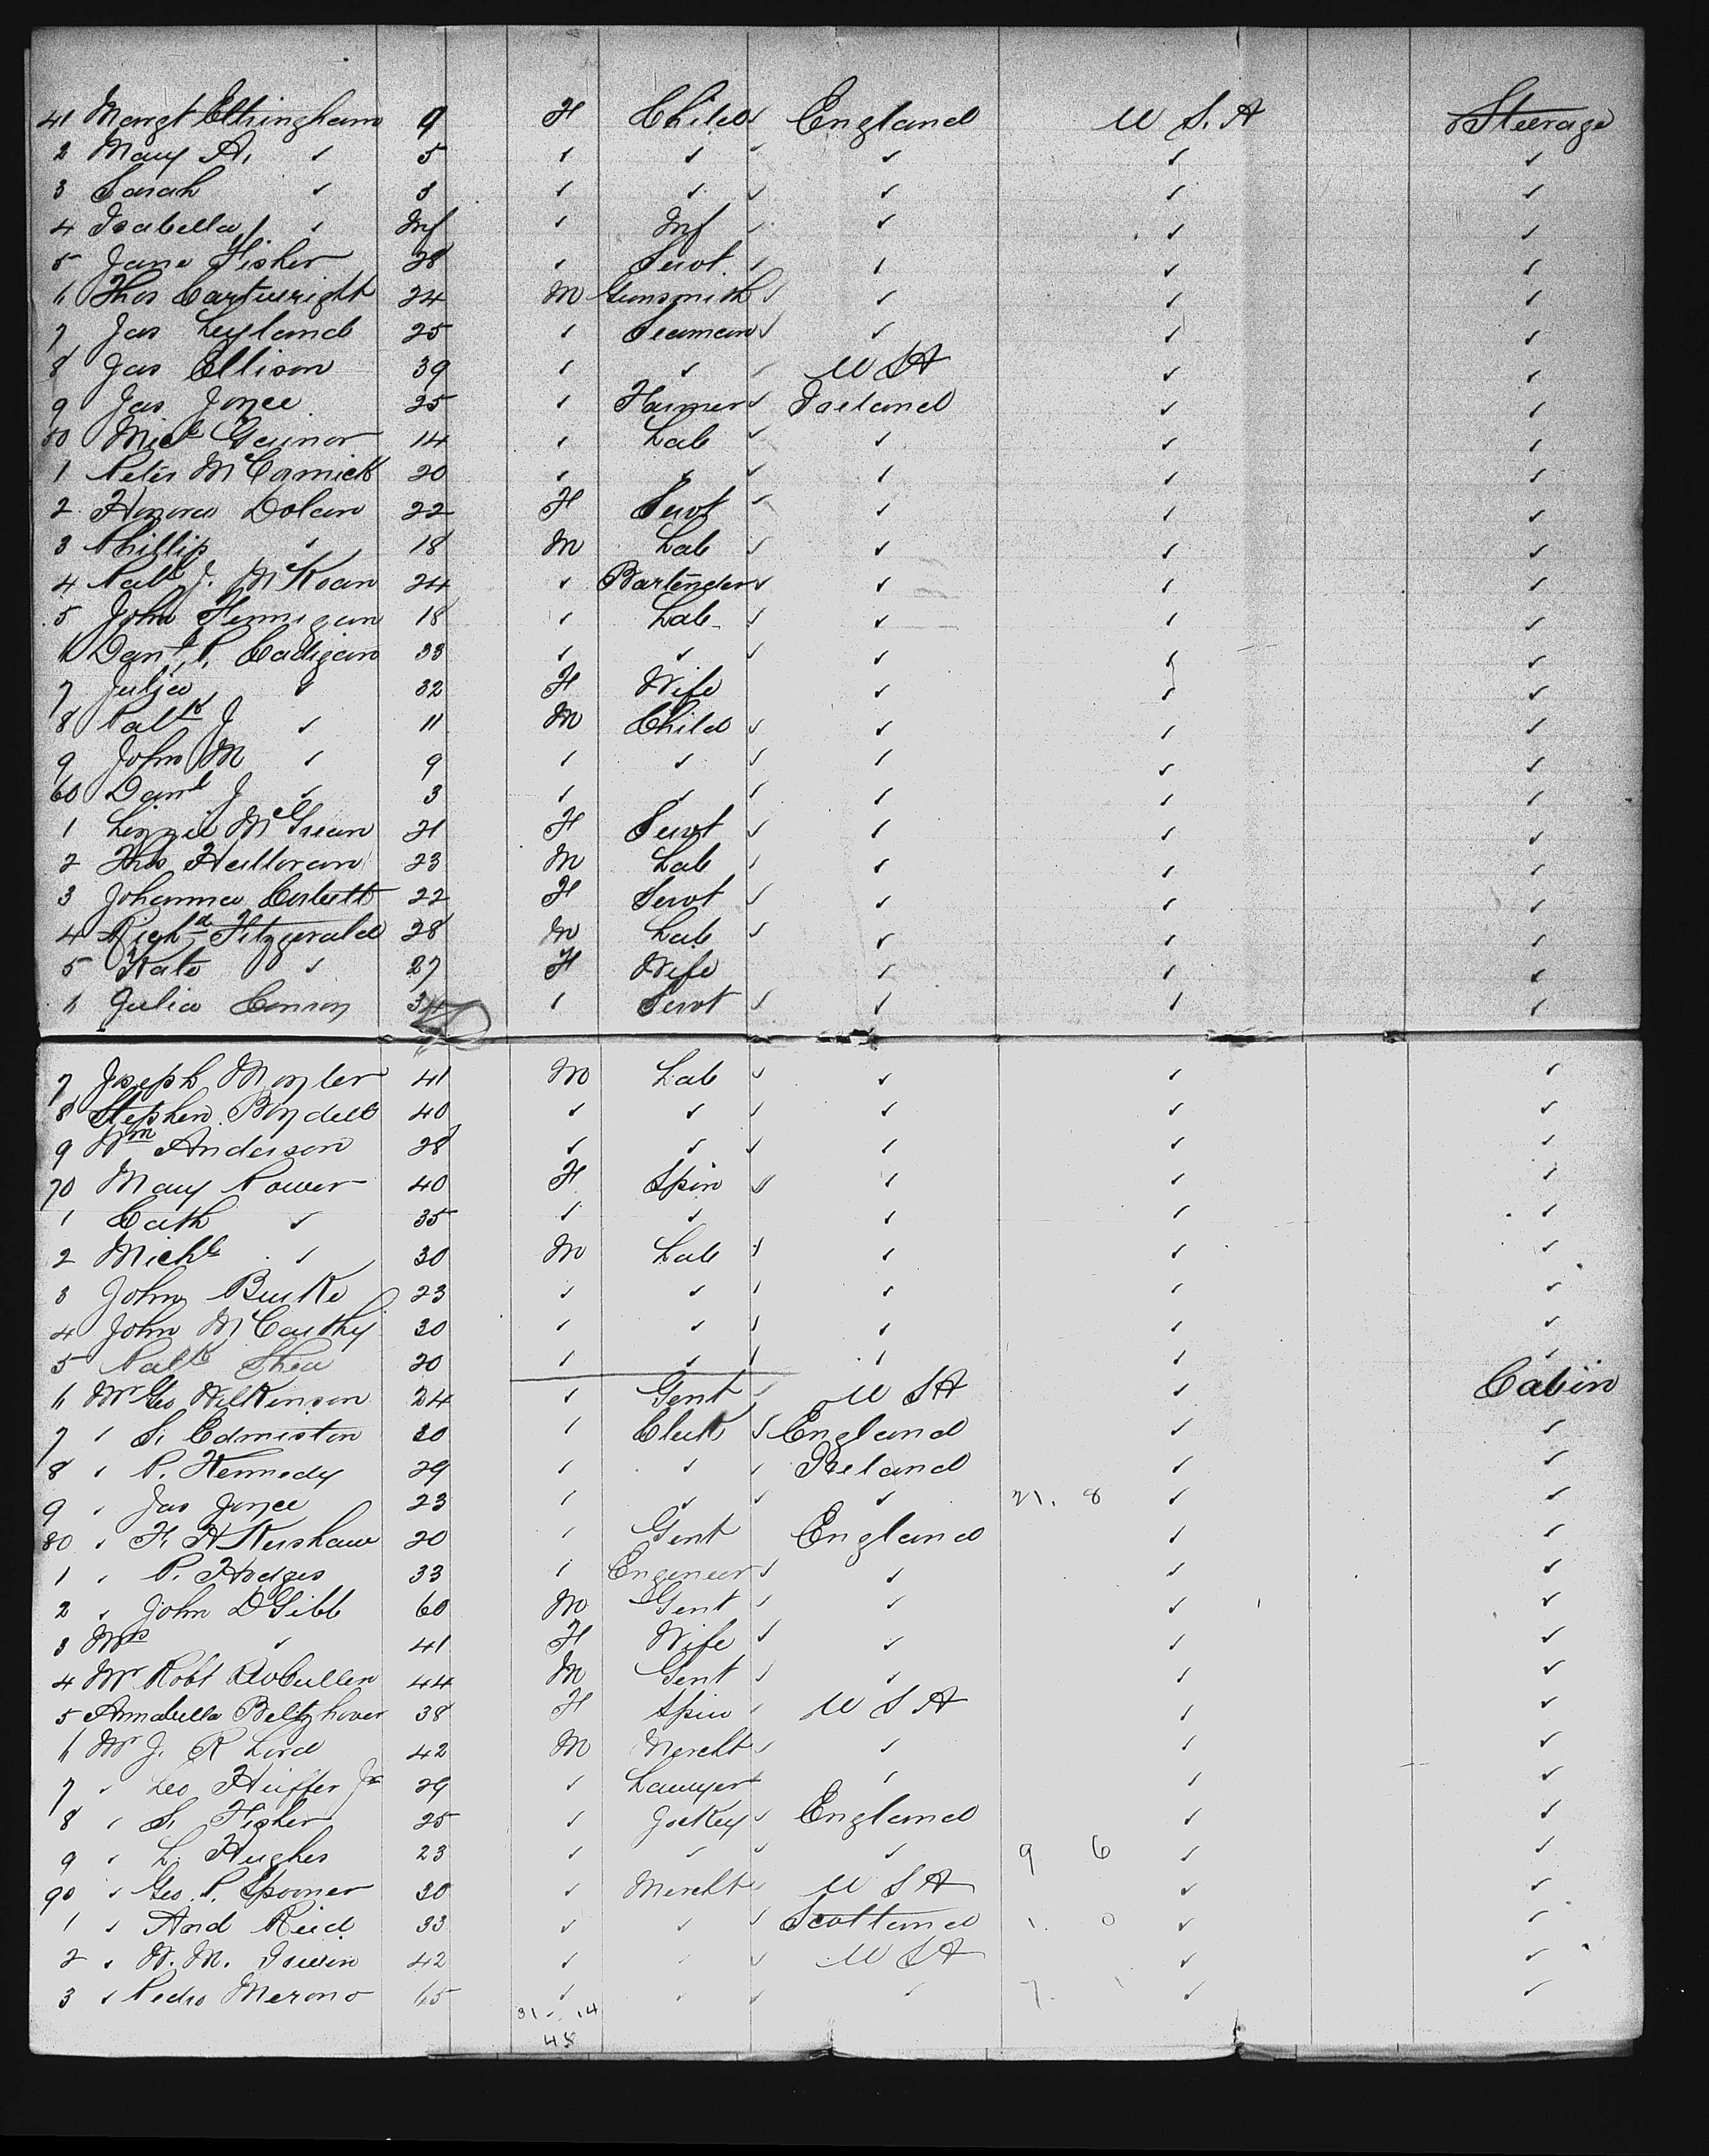 41 Margt Eltringham 9 F Child England U S. A Steerage
2 Mary A. ✓ 5 ✓ ✓ ✓ ✓ ✓
3 Sarah ✓ 3 ✓ ✓ ✓ ✓ ✓
4 Isabella ✓ Inf ✓ Inf ✓ ✓ ✓
5 Jane Fisher 28 ✓ Servt ✓ ✓ ✓
6 Thos Cartwright 24 M Gunsmith ✓ ✓ ✓
7 Jas Leyland 25 ✓ Seaman ✓ ✓ ✓
8 Jas Ellison 39 ✓ ✓ U S A ✓ ✓
9 Jas Joyce 25 ✓ Farmer Ireland ✓ ✓
50 Micl Gaynor 14 ✓ Lab ✓ ✓ ✓
1 Peter McCormick 20 ✓ ✓ ✓ ✓ ✓
2 Honora Dolan 22 F Servt ✓ ✓ ✓
3 Phillip ✓ 18 M Lab ✓ ✓ ✓
4 Patk J. McKoan 24 ✓ Bartender ✓ ✓ ✓
5 John Hennigan 18 ✓ Lab ✓ ✓ ✓
6 Danl P. Cadigan 33 ✓ ✓ ✓ ✓ ✓
7 Julia ✓ 32 F Wife ✓ ✓ ✓
8 Patk J ✓ 11 M Child ✓ ✓ ✓
9 John M ✓ 9 ✓ ✓ ✓ ✓ ✓
60 Danl J ✓ 3 ✓ ✓ ✓ ✓ ✓
1 Lizzie McGrean 21 F Servt ✓ ✓ ✓
2 Thos Halloran 23 M Lab ✓ ✓ ✓
3 Johanna Corbett 22 F Servt ✓ ✓ ✓
4 Richd Fitzgerald 28 M Lab ✓ ✓ ✓
5 Kate ✓ 27 F Wife ✓ ✓ ✓
6 Julia Conroy 34 ✓ Servt ✓ ✓ ✓
7 Joseph Moyler 41 M Lab ✓ ✓ ✓
8 Stephen Boydell 40 ✓ ✓ ✓ ✓ ✓
9 Wm Anderson 28 ✓ ✓ ✓ ✓ ✓
70 Mary Power 40 F Spin ✓ ✓ ✓
1 Cath ✓ 35 ✓ ✓ ✓ ✓ ✓
2 Michl ✓ 30 M Lab ✓ ✓ ✓
3 John Burke 23 ✓ ✓ ✓ ✓ ✓
4 John McCarthy 30 ✓ ✓ ✓ ✓ ✓
5 Patk Shea 20 ✓ ✓ ✓ ✓ ✓
6 Mr Geo Wilkinson 24 ✓ Gent U S A ✓ Cabin
7 ✓ S. Edmiston 30 ✓ Clerk England ✓ ✓
8 ✓ P. Kennedy 29 ✓ ✓ Ireland ✓ ✓
9 ✓ Jas Joyce 23 ✓ ✓ ✓ 21. 8 ✓ ✓
80 ✓ F. H Kershaw 20 ✓ Gent England ✓ ✓
1 ✓ P. Hodges 33 ✓ Engineer ✓ ✓ ✓
2 ✓ John D Gibb 60 M Gent ✓ ✓ ✓
3 Mrs ✓ 41 F Wife ✓ ✓ ✓
4 Mr Robt 44 M Gent ✓ ✓ ✓
5 Annabella Beltzhover 38 F Spin U S A ✓ ✓
6 Mr J. R Lord 42 M Mercht ✓ ✓ ✓
7 ✓ Leo Huffer Jr 29 ✓ Lawyer ✓ ✓ ✓
8 ✓ S. Fisher 25 ✓ Jockey England ✓ ✓
9 ✓ L. Hughes 23 ✓ ✓ ✓ 9 6 ✓ ✓
90 ✓ Geo. P. Spooner 30 ✓ Mercht U S A ✓ ✓
1 ✓ And Reid 33 ✓ ✓ Scotland 1. 0 ✓ ✓
2 ✓ W. M. Irwin 42 ✓ ✓ U S A ✓ ✓
3 ✓ Pedro Merono 65 ✓ ✓ ✓ 7. ✓ ✓
31 - 14
45